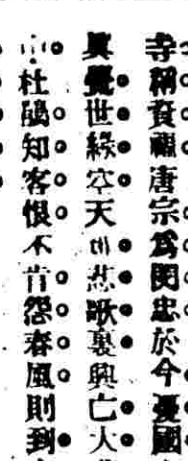 寺稱資福唐宗爲閔忠於今憂國
眞覺世緣空天地悲歌裏興亡大
中杜鵑知客恨不肯怨春風則到